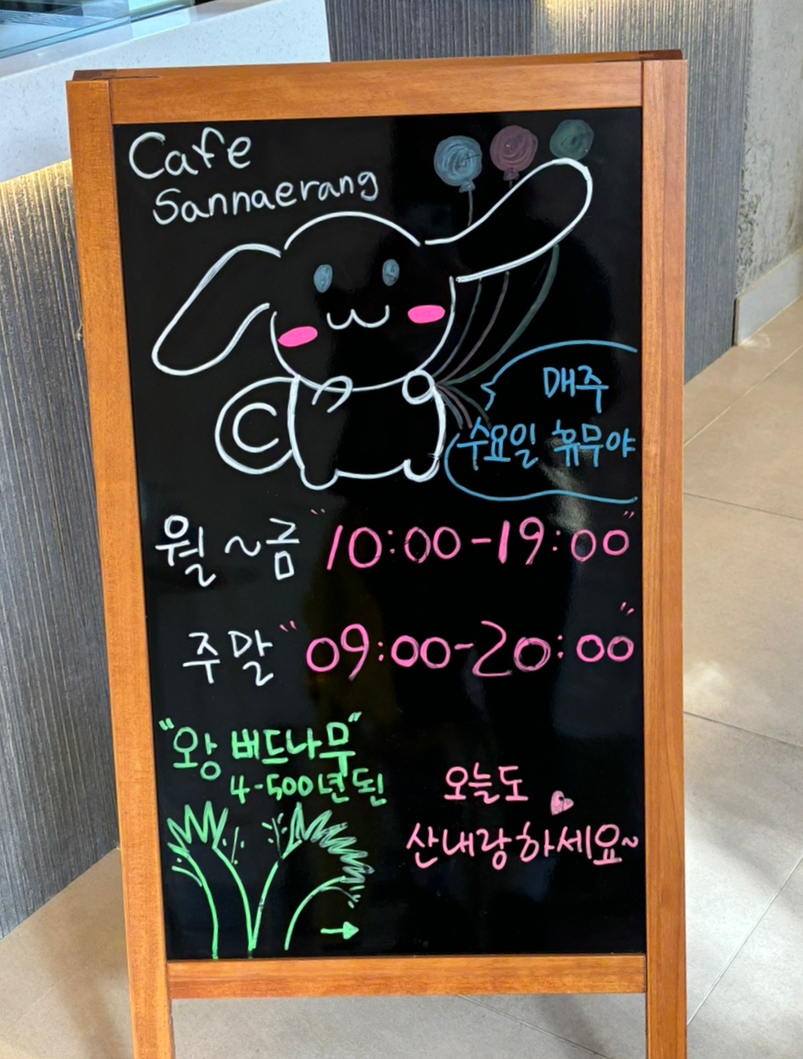 Cafe
Sannaerang
C
매주
수요일 휴무야
월~금 "10:00-19:00"
주말 "09:00-20:00"
"왕 버드나무"
4-500년된
오늘도
산내랑하세요~